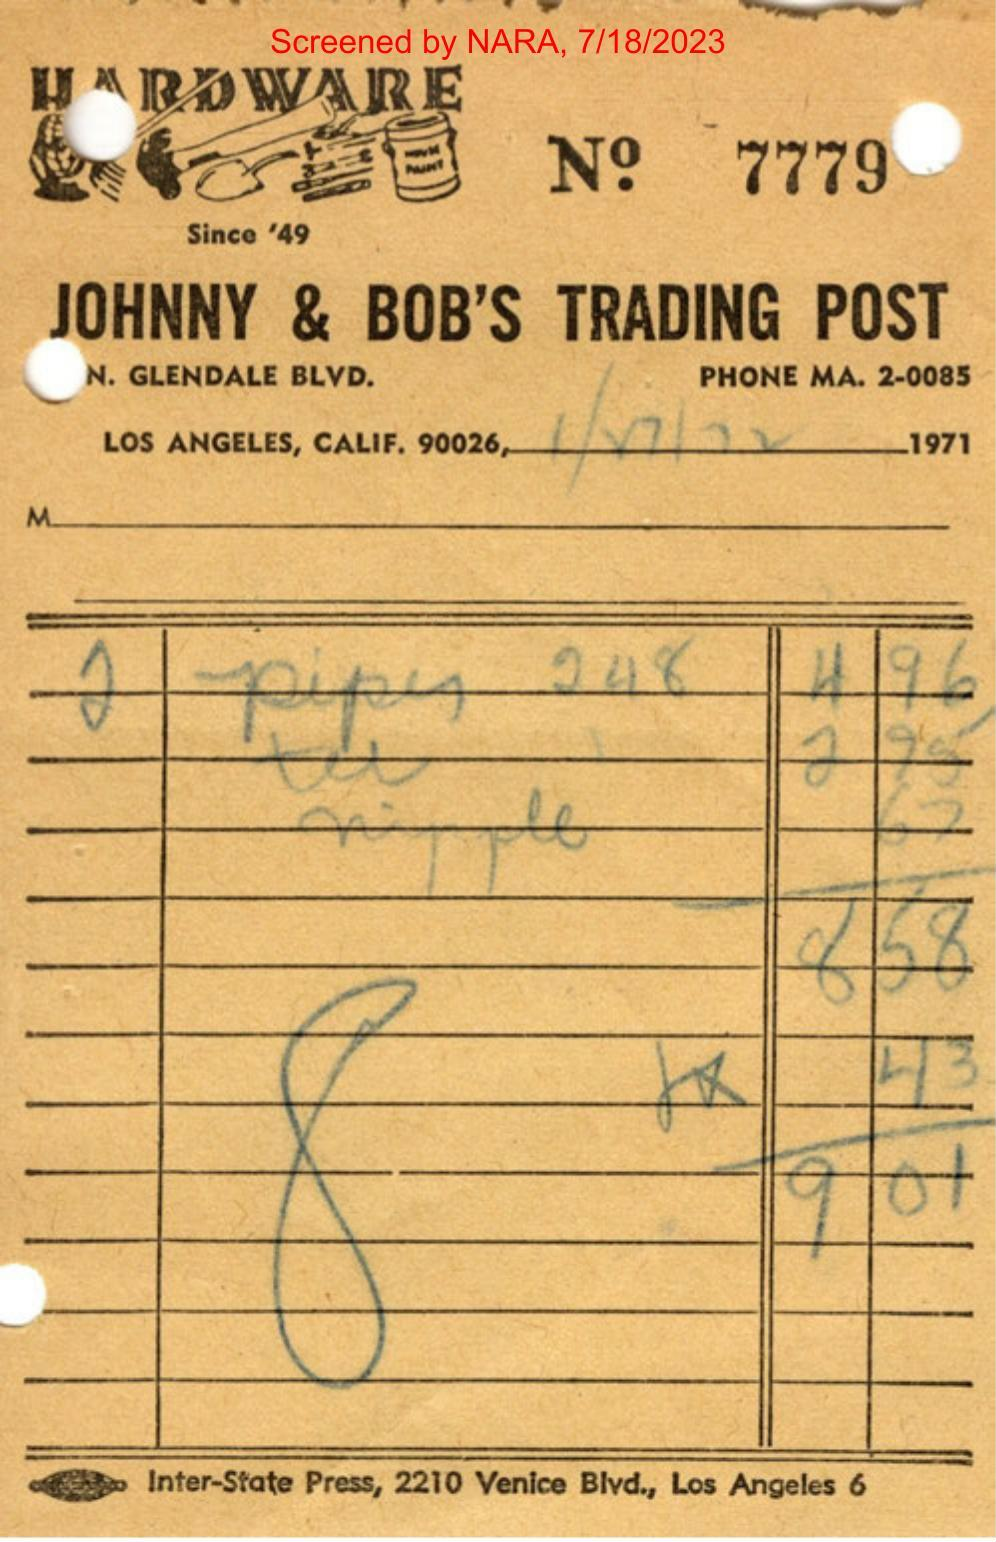 Screened by NARA, 7/18/2023
HARDWARE
HOUSE PAINT
Nº 7779
Since '49
JOHNNY & BOB'S TRADING POST
N. GLENDALE BLVD. PHONE MA. 2-0085
LOS ANGELES, CALIF. 90026, 1/27/72 1971
M
2 pipes 248 4 96
tee 2 95
nipple 67
8 58
tx 43
9 01
8
Inter-State Press, 2210 Venice Blvd., Los Angeles 6